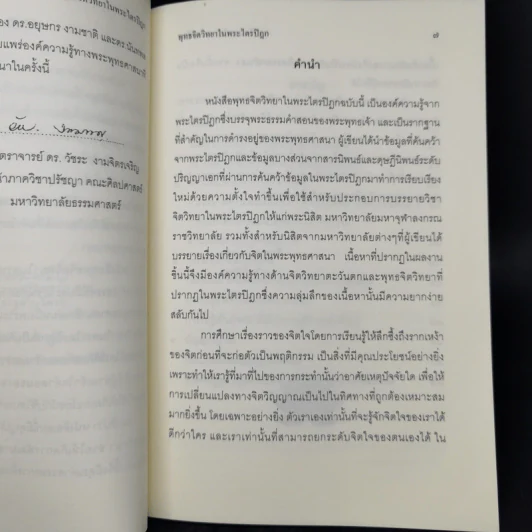 อง ดร.อยุษกร งามชาติ และดร.นันทพล
ยแพร่องค์ความรู้ทางพระพุทธศาสนาที่
นาในครั้งนี้
ตราจารย์ ดร. วัชระ งามจิตรเจริญ
ภาควิชาปรัชญา คณะศิลปศาสตร์
มหาวิทยาลัยธรรมศาสตร์
พุทธจิตวิทยาในพระไตรปิฎก
๗
คำนำ
หนังสือพุทธจิตวิทยาในพระไตรปิฎกฉบับนี้ เป็นองค์ความรู้จาก
พระไตรปิฎกซึ่งบรรจุพระธรรมคำสอนของพระพุทธเจ้า และเป็นรากฐาน
ที่สำคัญในการดำรงอยู่ของพระพุทธศาสนา ผู้เขียนได้นำข้อมูลที่ค้นคว้า
จากพระไตรปิฎกและข้อมูลบางส่วนจากสารนิพนธ์และดุษฎีนิพนธ์ระดับ
ปริญญาเอกที่ผ่านการค้นคว้าข้อมูลในพระไตรปิฎกมาทำการเรียบเรียง
ใหม่ด้วยความตั้งใจทำขึ้นเพื่อใช้สำหรับประกอบการบรรยายวิชา
จิตวิทยาในพระไตรปิฎกให้แก่พระนิสิต มหาวิทยาลัยมหาจุฬาลงกรณ
ราชวิทยาลัย รวมทั้งสำหรับนิสิตจากมหาวิทยาลัยต่างๆที่ผู้เขียนได้
บรรยายเรื่องเกี่ยวกับจิตในพระพุทธศาสนา เนื้อหาที่ปรากฏในผลงาน
ชิ้นนี้จึงมีองค์ความรู้ทางด้านจิตวิทยาตะวันตกและพุทธจิตวิทยาที่
ปรากฏในพระไตรปิฎกซึ่งความลุ่มลึกของเนื้อหานั้นมีความยากง่าย
สลับกันไป
การศึกษาเรื่องราวของจิตใจโดยการเรียนรู้ให้ลึกซึ้งถึงรากเหง้า
ของจิตก่อนที่จะก่อตัวเป็นพฤติกรรม เป็นสิ่งที่มีคุณประโยชน์อย่างยิ่ง
เพราะทำให้เรารู้ที่มาที่ไปของการกระทำนั้นว่าอาศัยเหตุปัจจัยใด เพื่อให้
การเปลี่ยนแปลงทางจิตวิญญาณเป็นไปในทิศทางที่ถูกต้องเหมาะสม
มากยิ่งขึ้น โดยเฉพาะอย่างยิ่ง ตัวเราเองเท่านั้นที่จะรู้จักจิตใจของเราได้
ดีกว่าใคร และเราเท่านั้นที่สามารถยกระดับจิตใจของตนเองได้ ใน